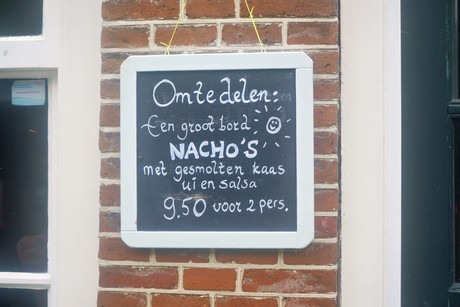 Om te delen:
Een groot bord
NACHO'S
met gesmolten kaas
ui en salsa
9.50 voor 2 pers.